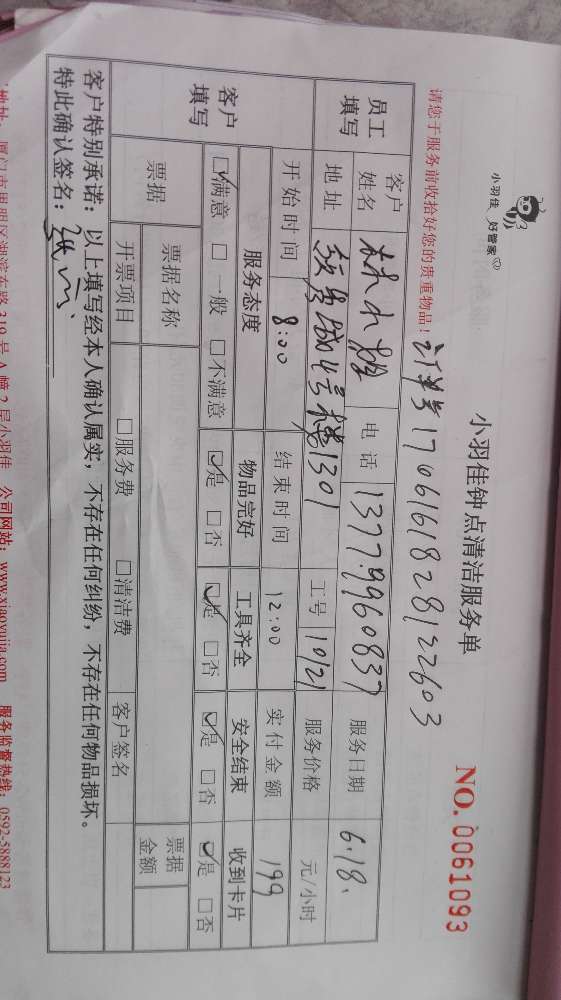 小羽佳 好管家
小羽佳钟点清洁服务单
NO. 0061093
请您于服务前收拾好您的贵重物品!
订单号1706161828122603
员工填写 客户姓名 林小姐 电话 13779960837 服务日期 6.18.
地址 号楼1301 工号 10121 服务价格 元/小时
客户填写 开始时间 8:00 结束时间 12:00 实付金额 199
服务态度 物品完好 工具齐全 安全结束 收到卡片
☑满意 □一般 □不满意 ☑是 □否 ☑是 □否 ☑是 □否 ☑是 □否
票据 票据名称 票据金额
开票项目 □服务费 □清洁费 客户签名
客户特别承诺:以上填写经本人确认属实,不存在任何纠纷,不存在任何物品损坏。
特此确认签名:
地址:厦门市思明区湖滨东路319号A幢2层小羽佳 公司网站:www.xiaoyujia.com 服务监督热线:0592-5888123